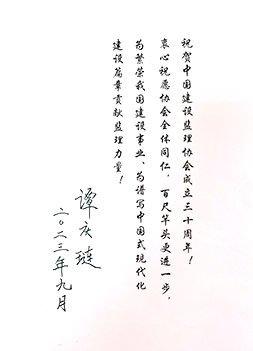 祝贺中国建设监理协会成立三十周年！
衷心祝愿协会全体同仁，百尺竿头更进一步，
为繁荣我国建设事业、为谱写中国式现代化
建设篇章贡献监理力量！
谭庆琏
二〇二三年九月